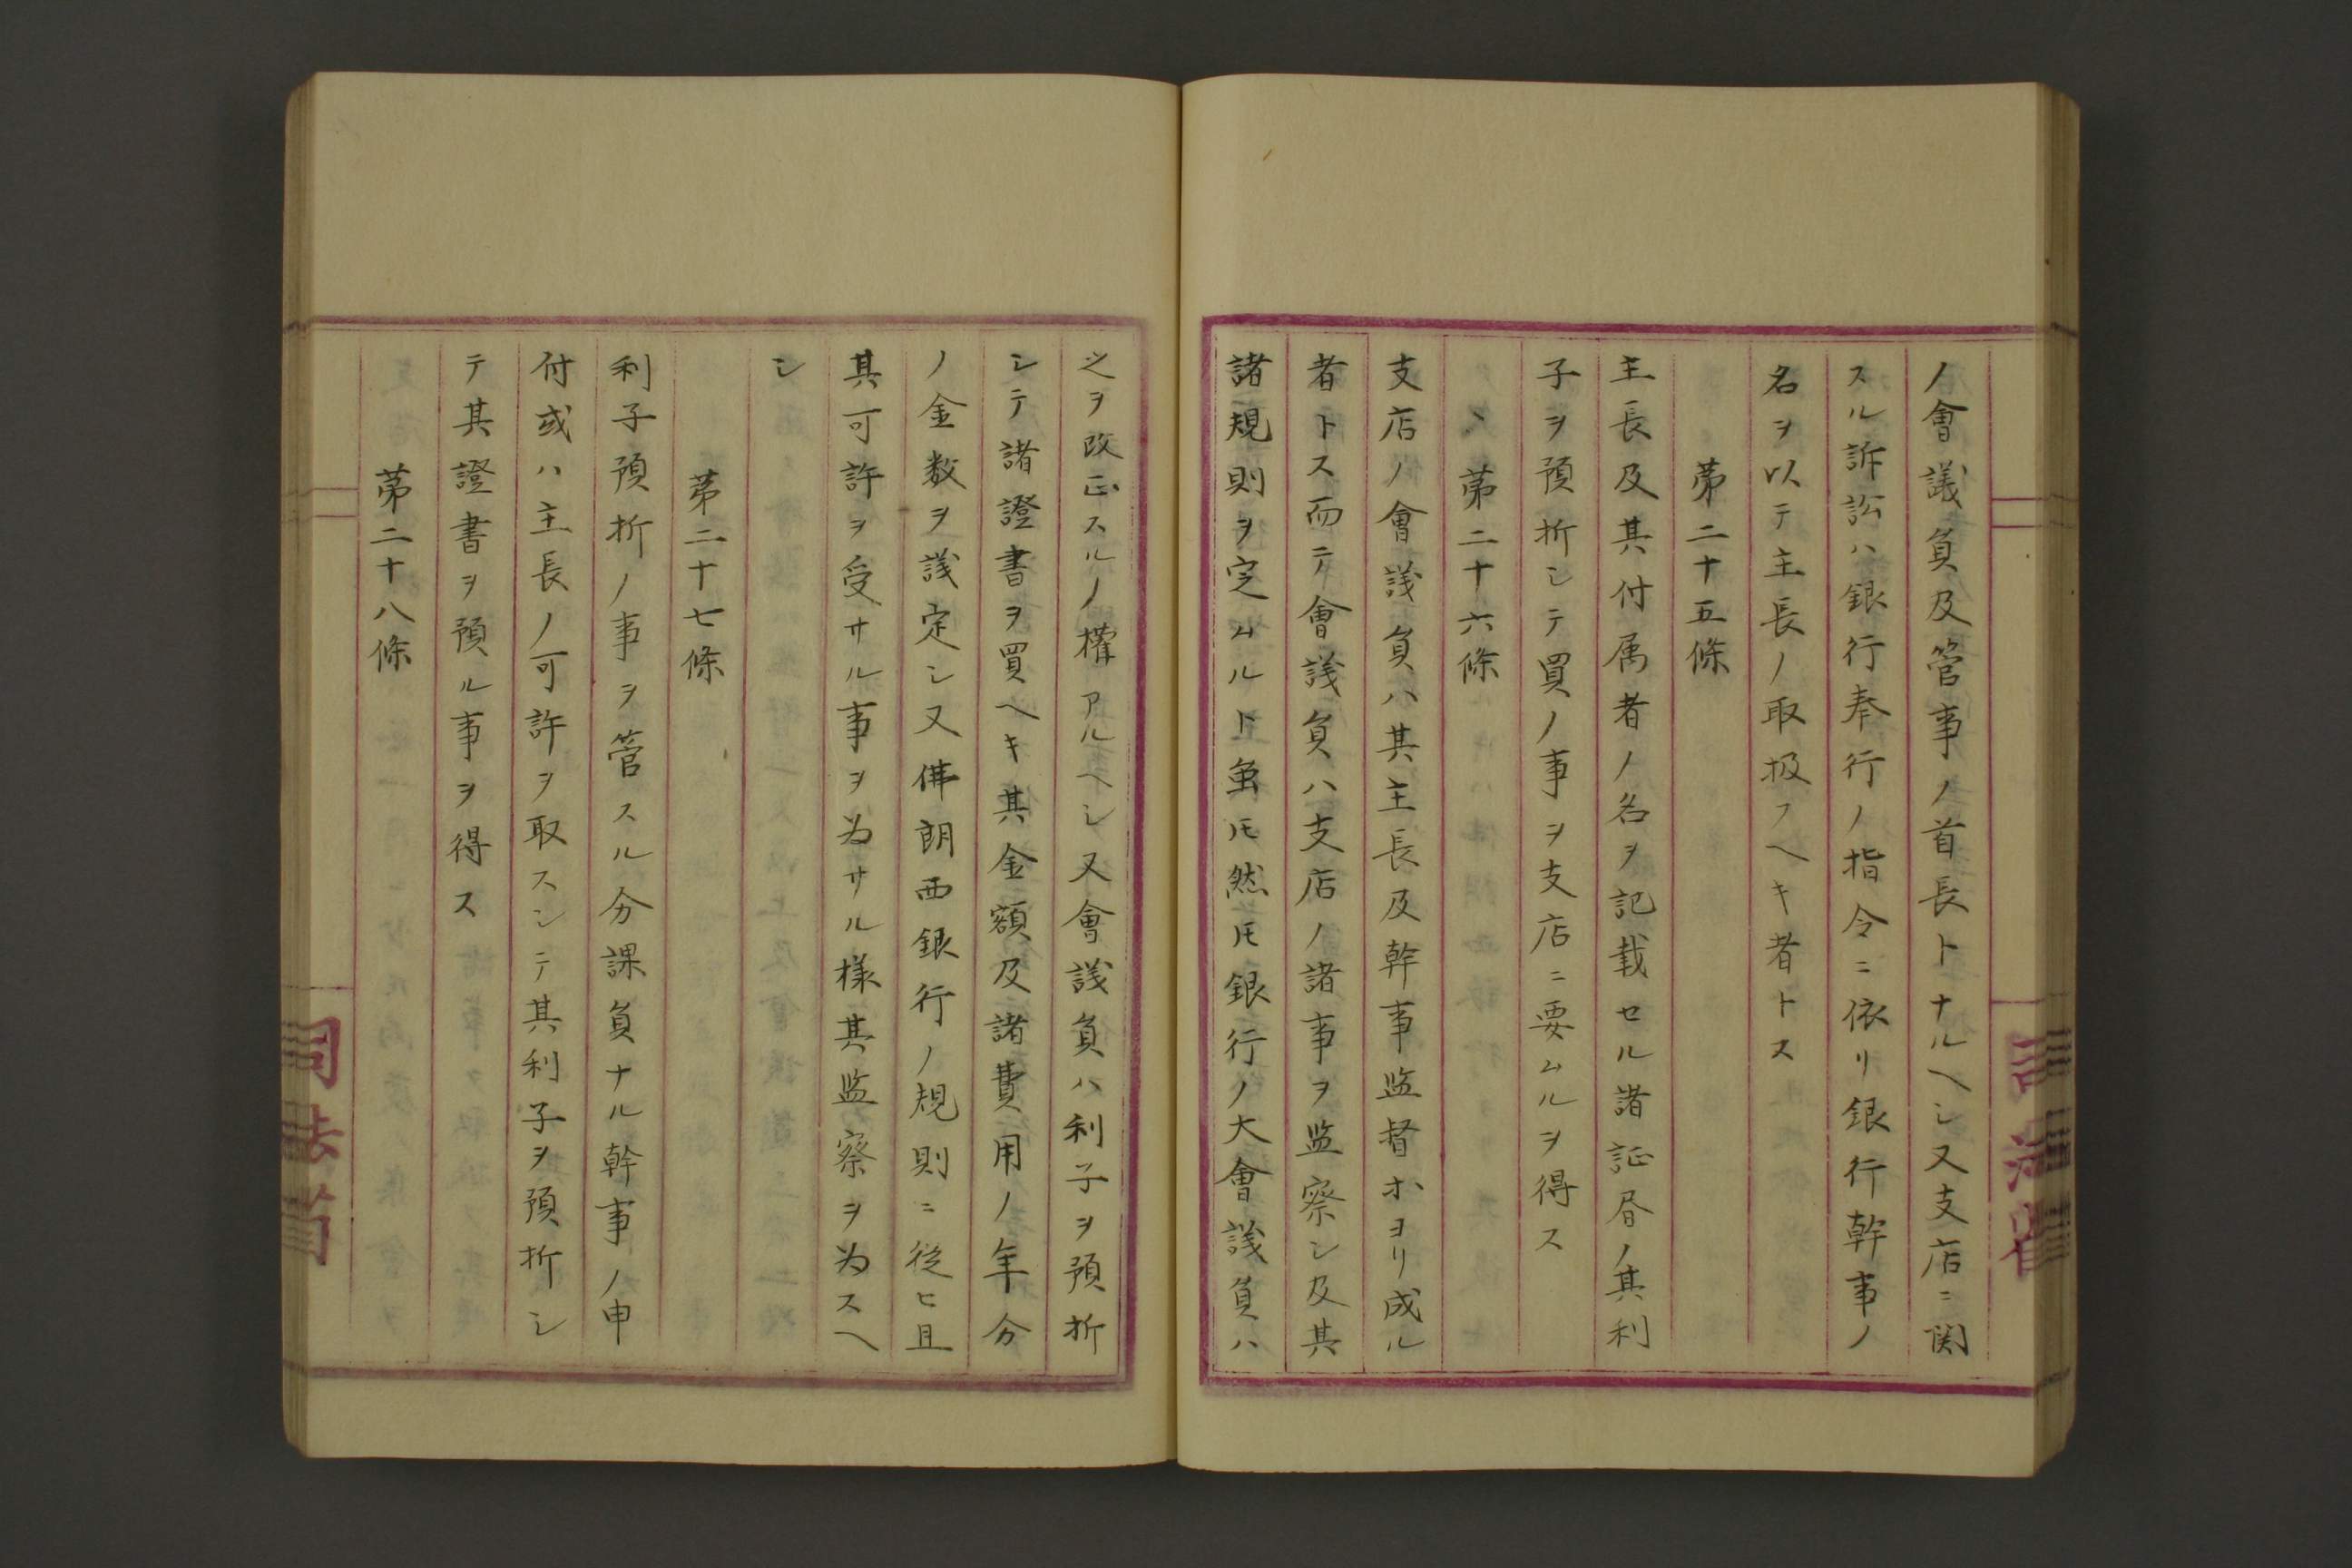 ノ會議員及管事ノ首長トナルヘシ又支店ニ関
スル訴訟ハ銀行奉行ノ指令ニ依リ銀行幹事ノ
名ヲ以テ主長ノ取扱フヘキ者トス
第二十五條
主長及其付属者ノ名ヲ記載セル諸証昏ノ其利
子ヲ預折シテ買ノ事ヲ支店ニ要ムルヲ得ス
第二十六條
支店ノ會議員ハ其主長及幹事监督ホヨリ成ル
者トス而テ會議員ハ支店ノ諸事ヲ监察シ及其
諸規則ヲ定ムルト虽𪜈然𪜈銀行ノ大會議員ハ
之ヲ改正スルノ權アルヘシ又會議員ハ利子ヲ預折
シテ諸證書ヲ買ヘキ其金額及諸費用ノ年分
ノ金数ヲ議定シ又佛朗西銀行ノ規則ニ從ヒ且
其可許ヲ受サル事ヲ为サル様其监察ヲ为スヘ
シ
第二十七條
利子預折ノ事ヲ管スル分課員ナル幹事ノ申
付或ハ主長ノ可許ヲ取スシテ其利子ヲ預折シ
テ其證書ヲ預ル事ヲ得ス
第二十八條
司法省